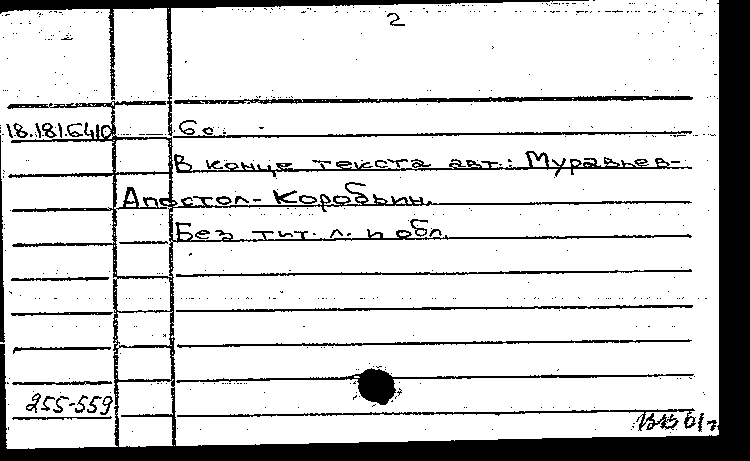 2
18.181.6410 6 с.
В конце текста авт.: Муравьев-
Апостол-Коробьин.
Без тит. л. и обл.
255-559